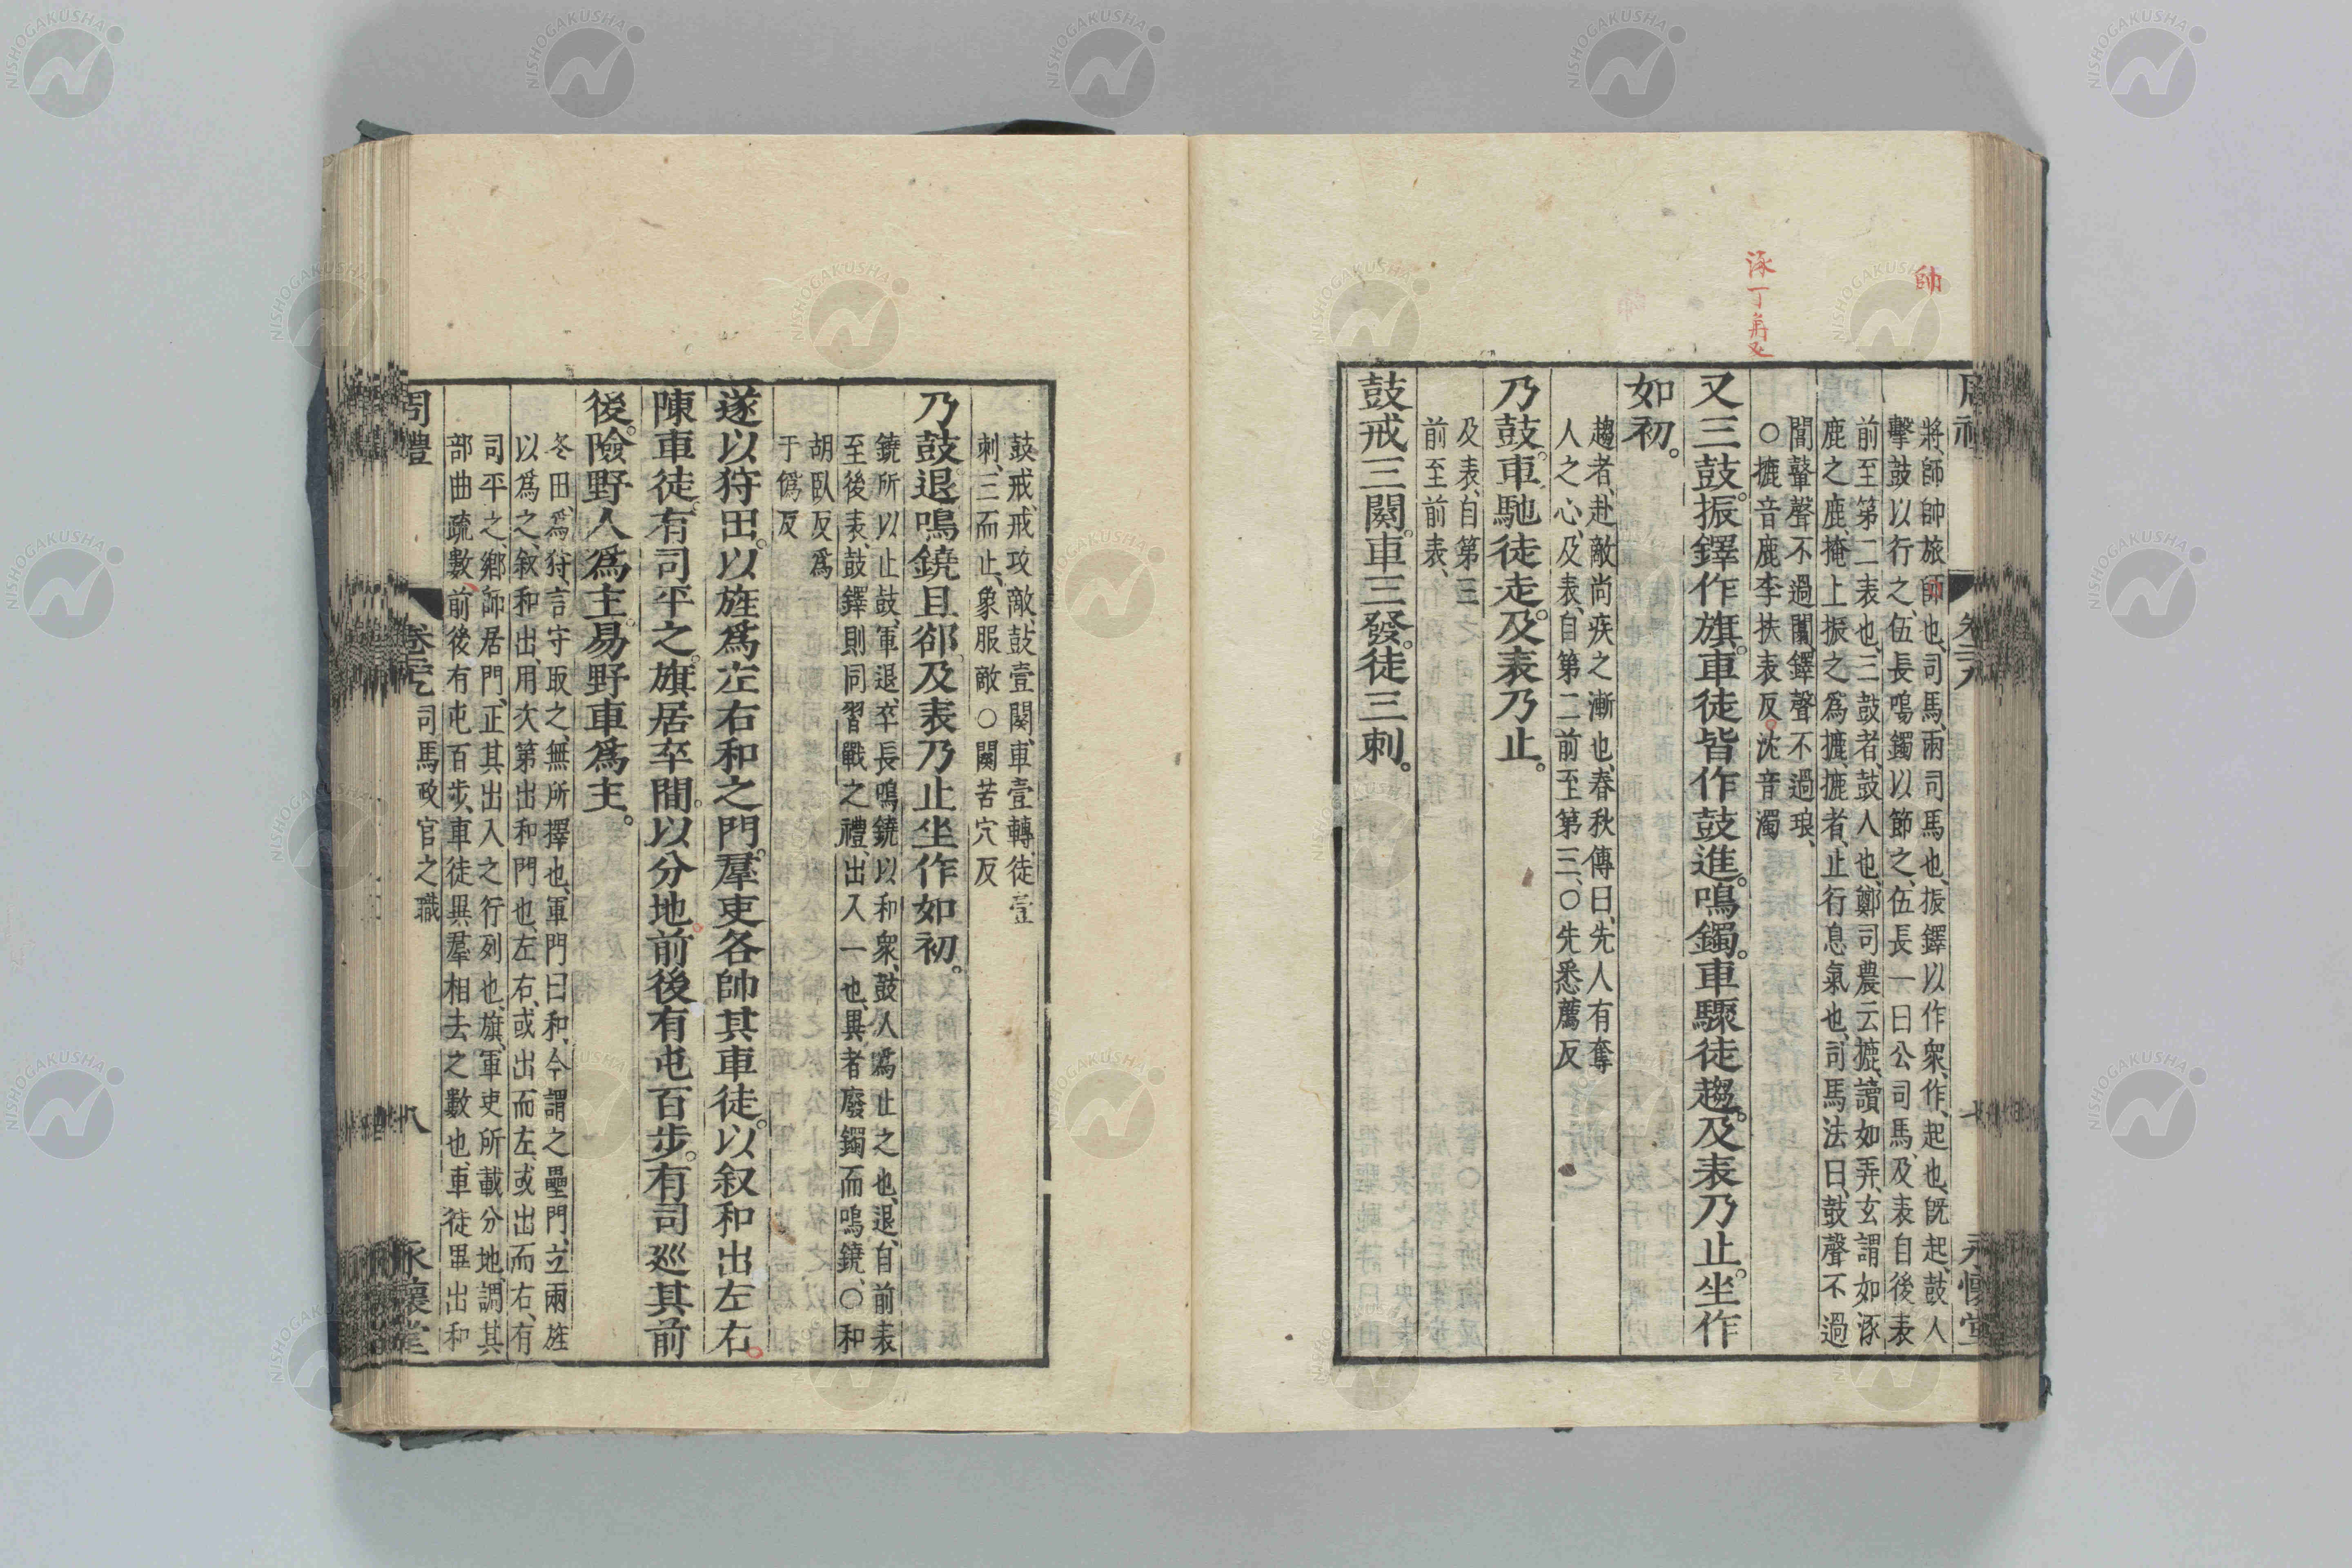 帥
涿丁角反
將師帥旅師也、司馬、兩司馬也、振鐸以作衆、作、起也、旣起、鼓人
擊鼓以行之、伍長鳴鐲以節之、伍長一曰公司馬、及表自後表
前至第二表也、三鼓者、鼓人也、鄭司農云摝、讀如弄、玄謂如涿
鹿之鹿、掩上振之爲摝、摝者、止行息氣也、司馬法曰、鼓聲不過
閶、鼙聲不過闒、鐸聲不過琅、
○摝音鹿李扶表反沈音濁
又三鼓。振鐸作旗。車徒皆作鼓進。鳴鐲。車驟徒趨。及表乃止。坐作
如初。
趨者、赴敵尚疾之漸也、春秋傳曰、先人有奪
人之心、及表、自第二前至第三、○先悉薦反
乃鼓。車馳徒走。及表乃止。
及表、自第三
前至前表、
鼓戒三闋。車三發。徒三刺。
鼓戒、戒攻敵、鼓壹闋、車壹轉、徒壹
刺、三而止、象服敵○闋苦穴反
乃鼓退鳴鐃且郤。及表乃止坐作如初。
鐃所以止鼓、軍退、卒長鳴鐃以和衆、鼓人爲止之也、退、自前表
至後表、鼓鐸則同習戰之禮、出入一也、異者廢鐲而鳴鐃、○和
胡臥反爲
于僞反
遂以狩田。以旌爲左右和之門。羣吏各帥其車徒。以叙和出左右
陳車徒。有司平之。旗居卒間。以分地前後有屯百步。有司巡其前
後。險野人爲主。易野車爲主。
冬田、爲狩、言守取之、無所擇也、軍門曰和、今謂之壘門、立兩旌
以爲之、敘和出、用次第出和門也、左右、或出而左、或出而右、有
司平之、鄉師居門、正其出入之行列也、旗、軍吏所載分地、調其
部曲疏數、前後有屯百步、車徒異羣相去之數也、車徒畢出和
周禮 司馬政官之職 八 永懷堂